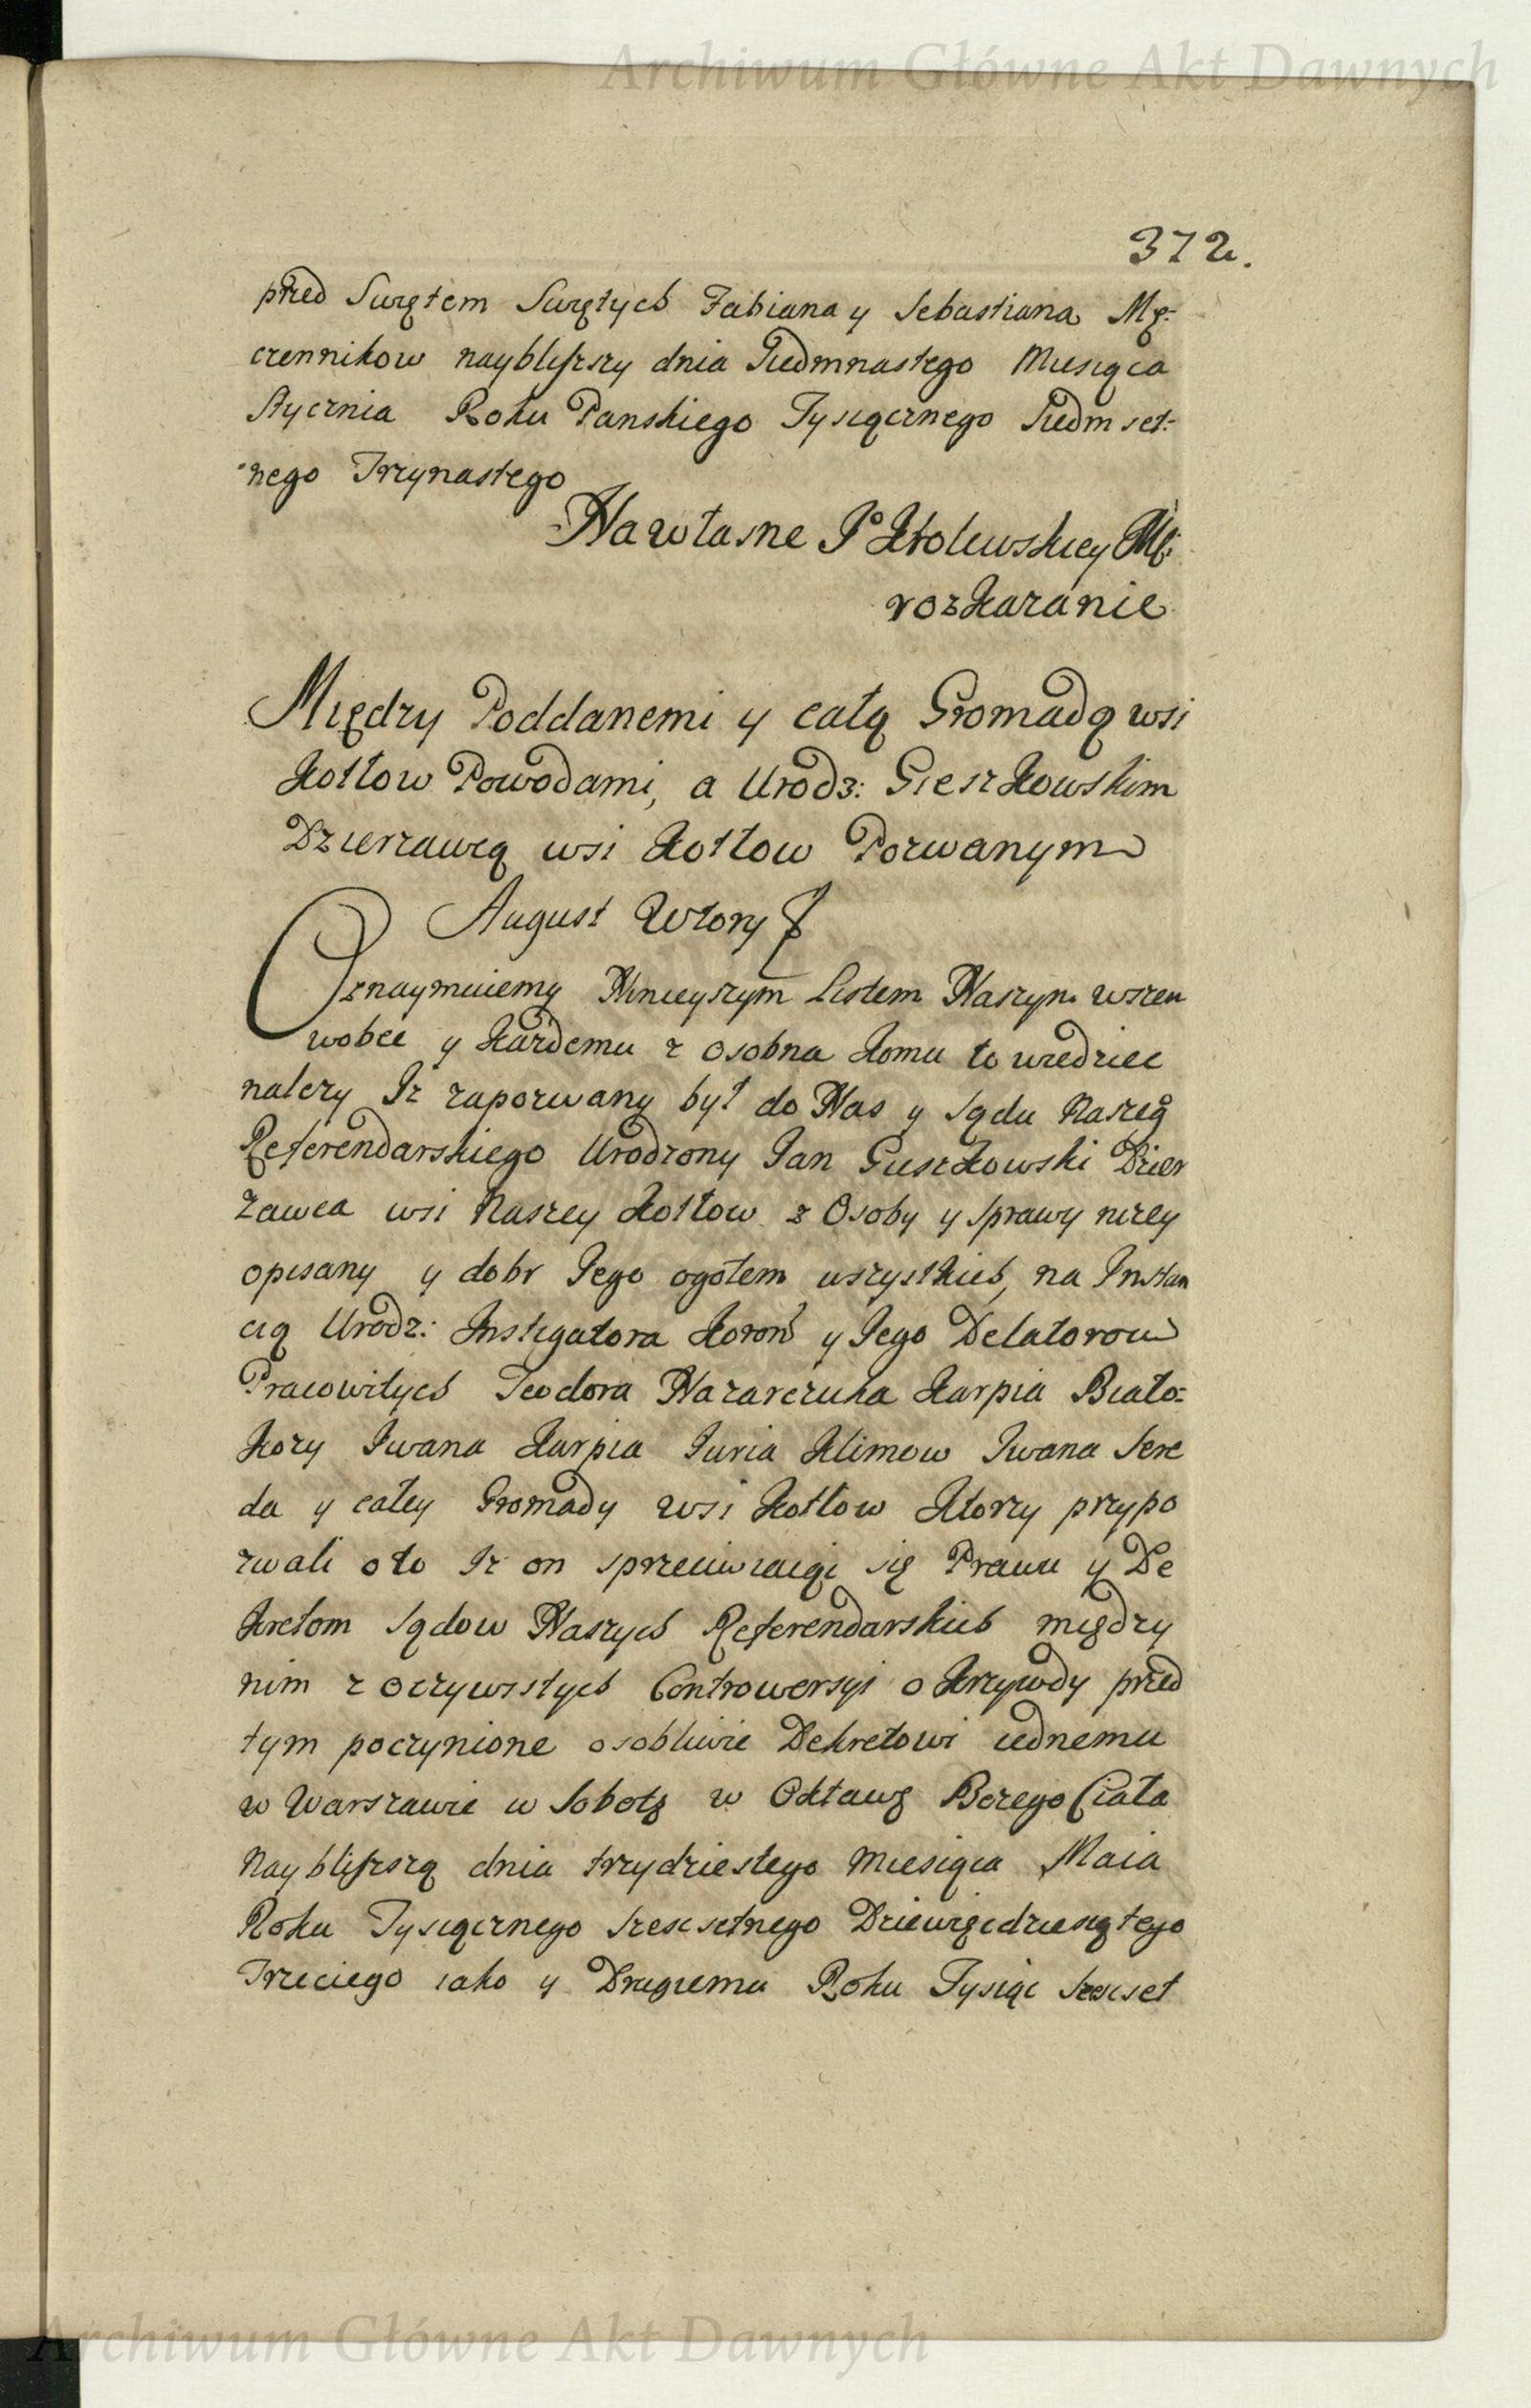 Archiwum Główne Akt Dawnych
372.
przed Swiętem Swiętych Fabiana y Sebastiana Mę-
czennikow nayblißszy dnia Siedmnastego Miesiąca
Stycznia Roku Panskiego Tysiącznego Siedmset-
nego Trzynastego
Na własne Jº Krolewskiey Mći
rozkazanie
Między Poddanemi y całą Gromadą wsi
Kotłow Powodami, a Urodz: Gieszkowskim
Dzierzawcą wsi Kotłow Pozwanym
August Wtory
Oznaymuiemy Ninieyszym Listem Naszym wszem
wobec y każdemu z osobna komu to wiedziec
nalezy Iz zapozwany był do Nas y Sądu Naszegº
Referendarskiego Urodzony Jan Gieszkowski Dzier
zawca wsi Naszey Kotłow z Osoby y sprawy nizey
opisany y dobr Jego ogołem wszystkich, na Instan
cią Urodz: Instigatora Koron y Jego Delatorow
Pracowitych Teodora Nazarczuka Karpia Biało-
kozy Iwana Karpia Juria Klimow Iwana Sere
da y całey Gromady wsi Kotłow ktorzy przypo
zwali oto Iz on sprzeciwiaiąc się Prawu y De
kretom Sądow Naszych Referendarskich między
nim z oczywistych Controwersyi o krzywdy przed
tym poczynione osobliwie Dekretowi iednemu
w Warszawie w Sobotę w Oktawę Bozego Ciała
nayblißszą dnia trzydziestego Miesiąca Maia
Roku Tysiącznego Szescsetnego Dziewięcdziesiątego
Trzeciego iako y Drugiemu Roku Tysiąc Szescset
Archiwum Główne Akt Dawnych